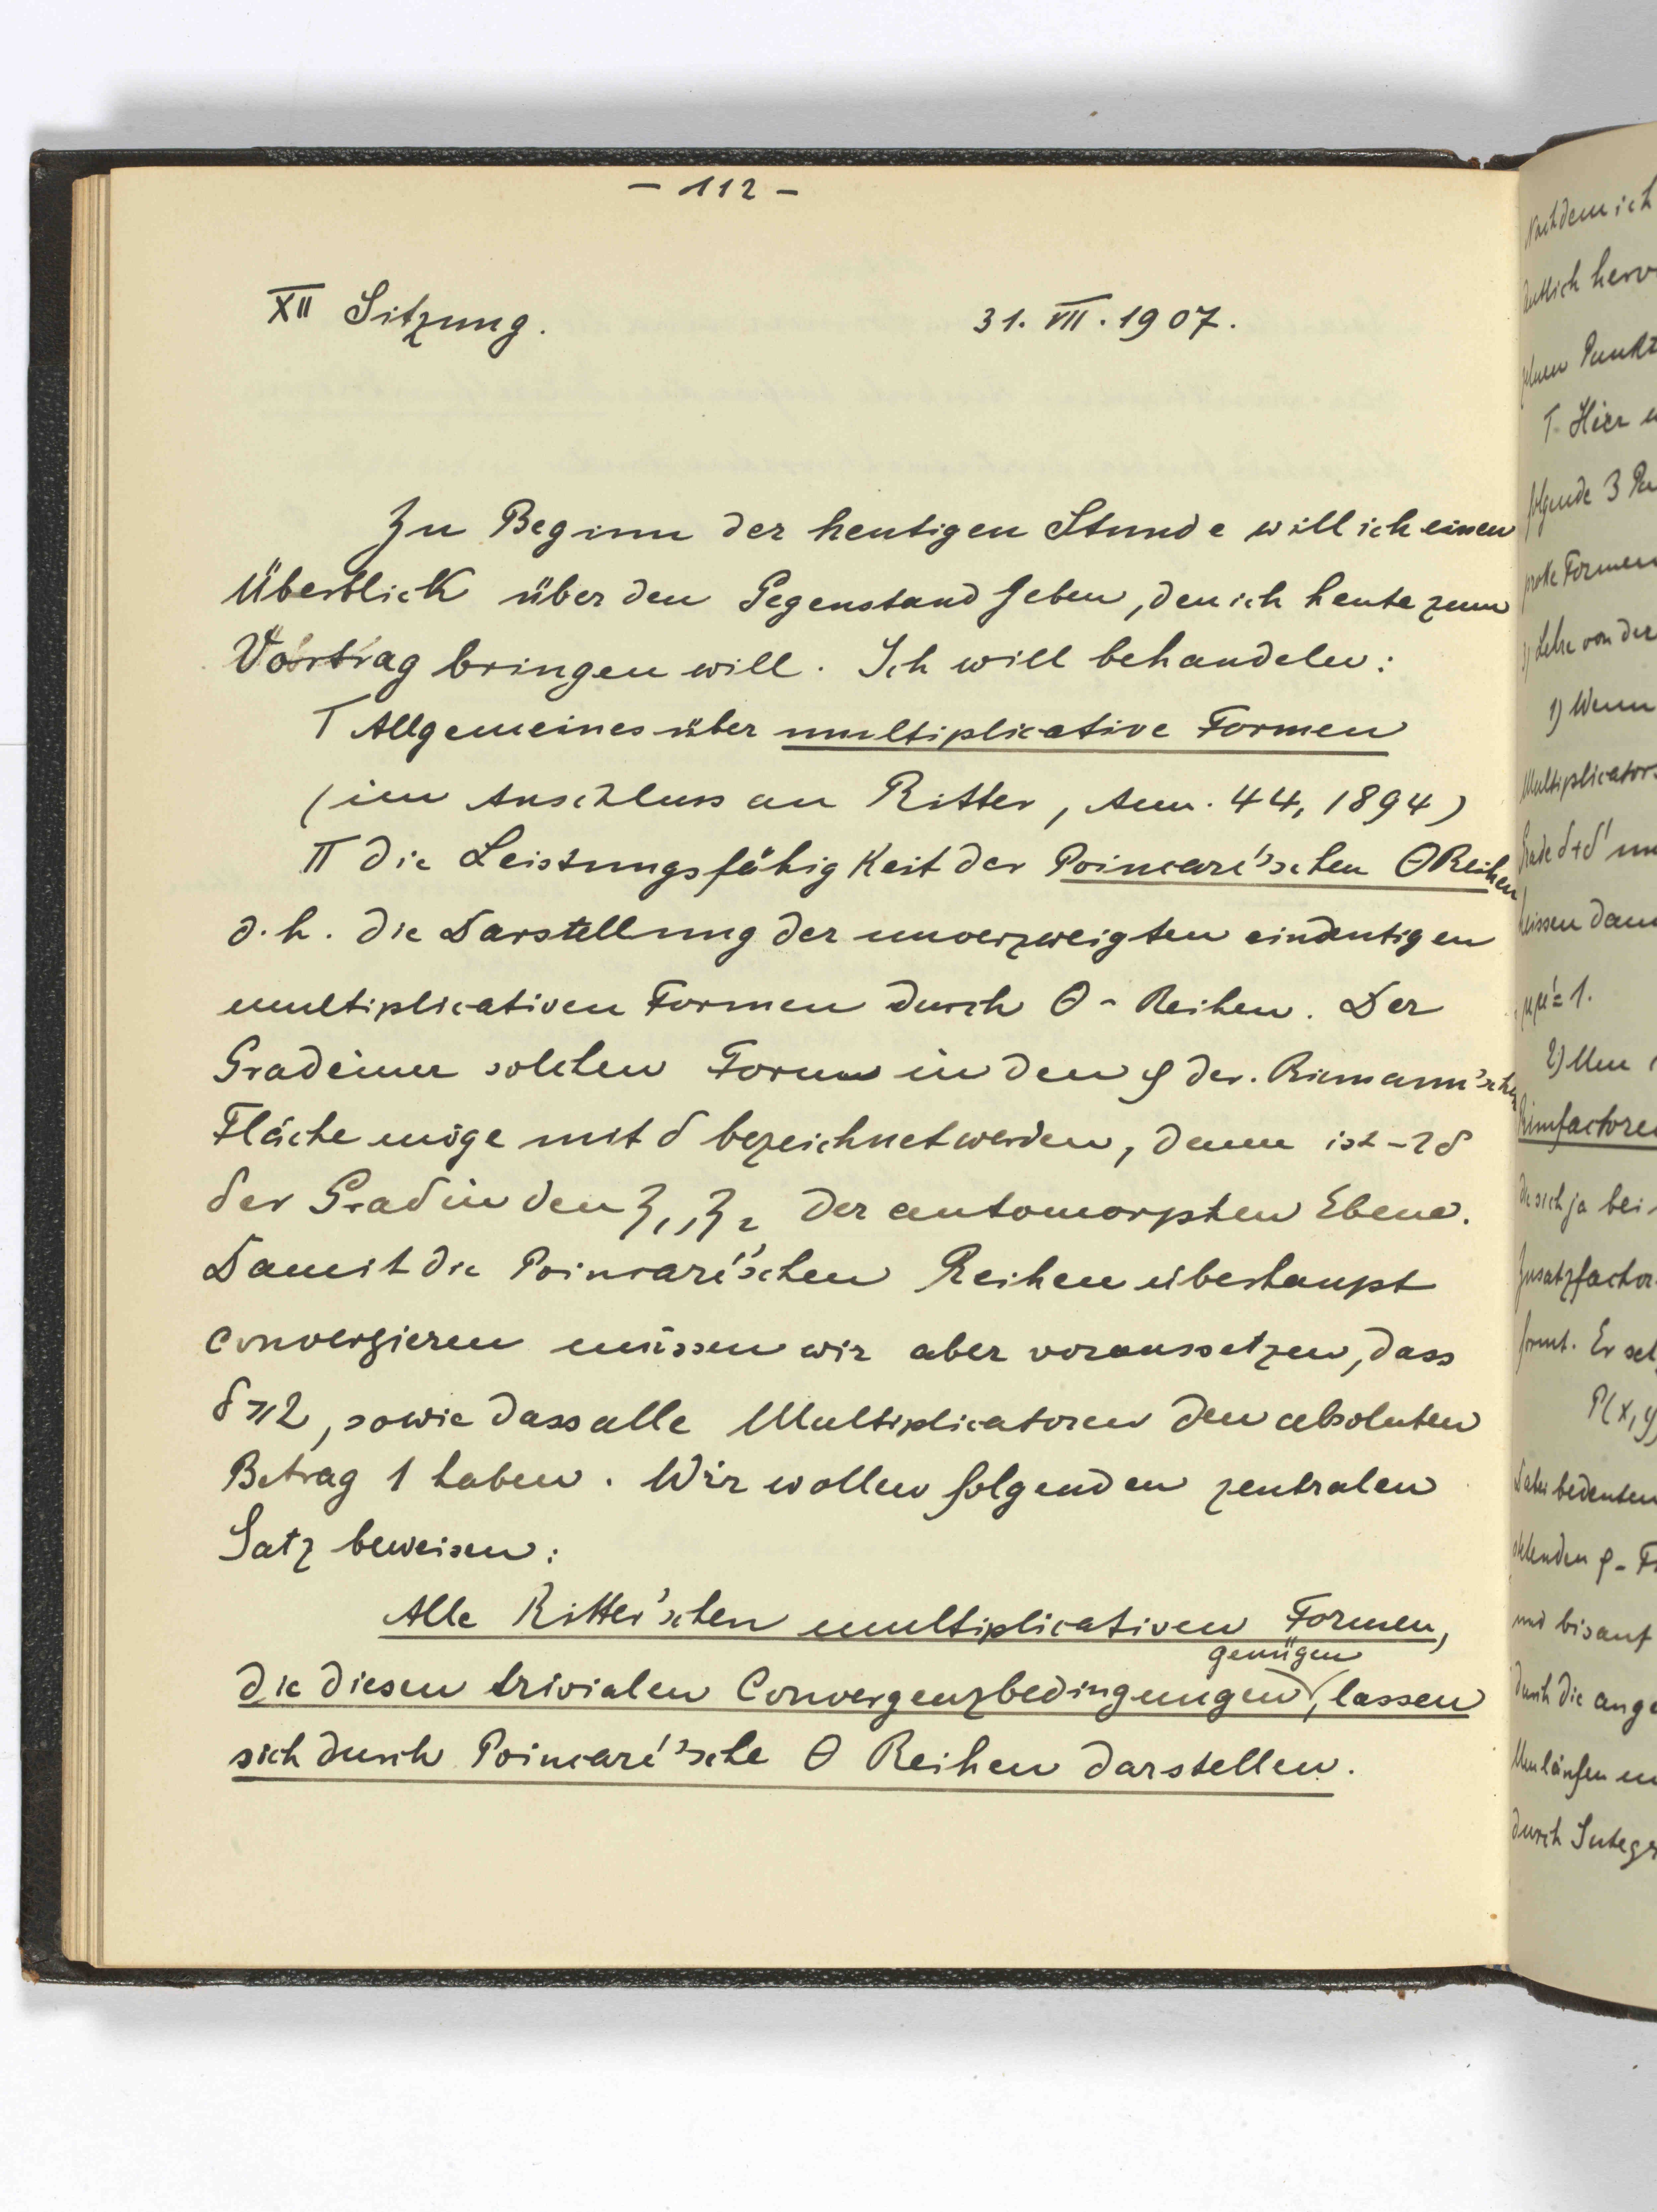 - 112 -
XII Sitzung. 31. VII. 1907.
Zu Beginn der heutigen Stunde will ich einen
Überblick über den Gegenstand geben, den ich heute zum
Vortrag bringen will. Ich will behandeln:
I Allgemeines über multiplicative Formen
(im Anschluss an Ritter, Ann. 44, 1894)
II die Leistungsfähigkeit der Poincaré'schen Θ Reihen
d. h. die Darstellung der unverzweigten eindeutigen
multiplicativen Formen durch Θ - Reihen. Der
Grad einer solchen Form in den φ der Riemann'schen
Fläche möge mit δ bezeichnet werden, dann ist -2δ
der Grad in den ζ₁, ζ₂ der automorphen Ebene.
Damit die Poincaré'schen Reihen überhaupt
convergieren müssen wir aber voraussetzen, dass
δ ≥ 2, sowie dass alle Multiplicatoren den absoluten
Betrag 1 haben. Wir wollen folgenden zentralen
Satz beweisen:
Alle Ritter'schen multiplicativen Formen,
die diesen trivialen Convergenzbedingungen genügen, lassen
sich durch Poincaré'sche Θ Reihen darstellen.
Nachdem ich
Punkt
Hier
folgende 3
Formen
Lehre von der
1) Wenn
Multiplicators
Grade δ+δ'
heissen dann
μμ' = 1.
2)
Primfactoren
die sich ja bei
Zusatzfactor
formt. Er
P(x, y)
Dabei bedeuten
und bis auf
durch die
Umläufen
durch Integr